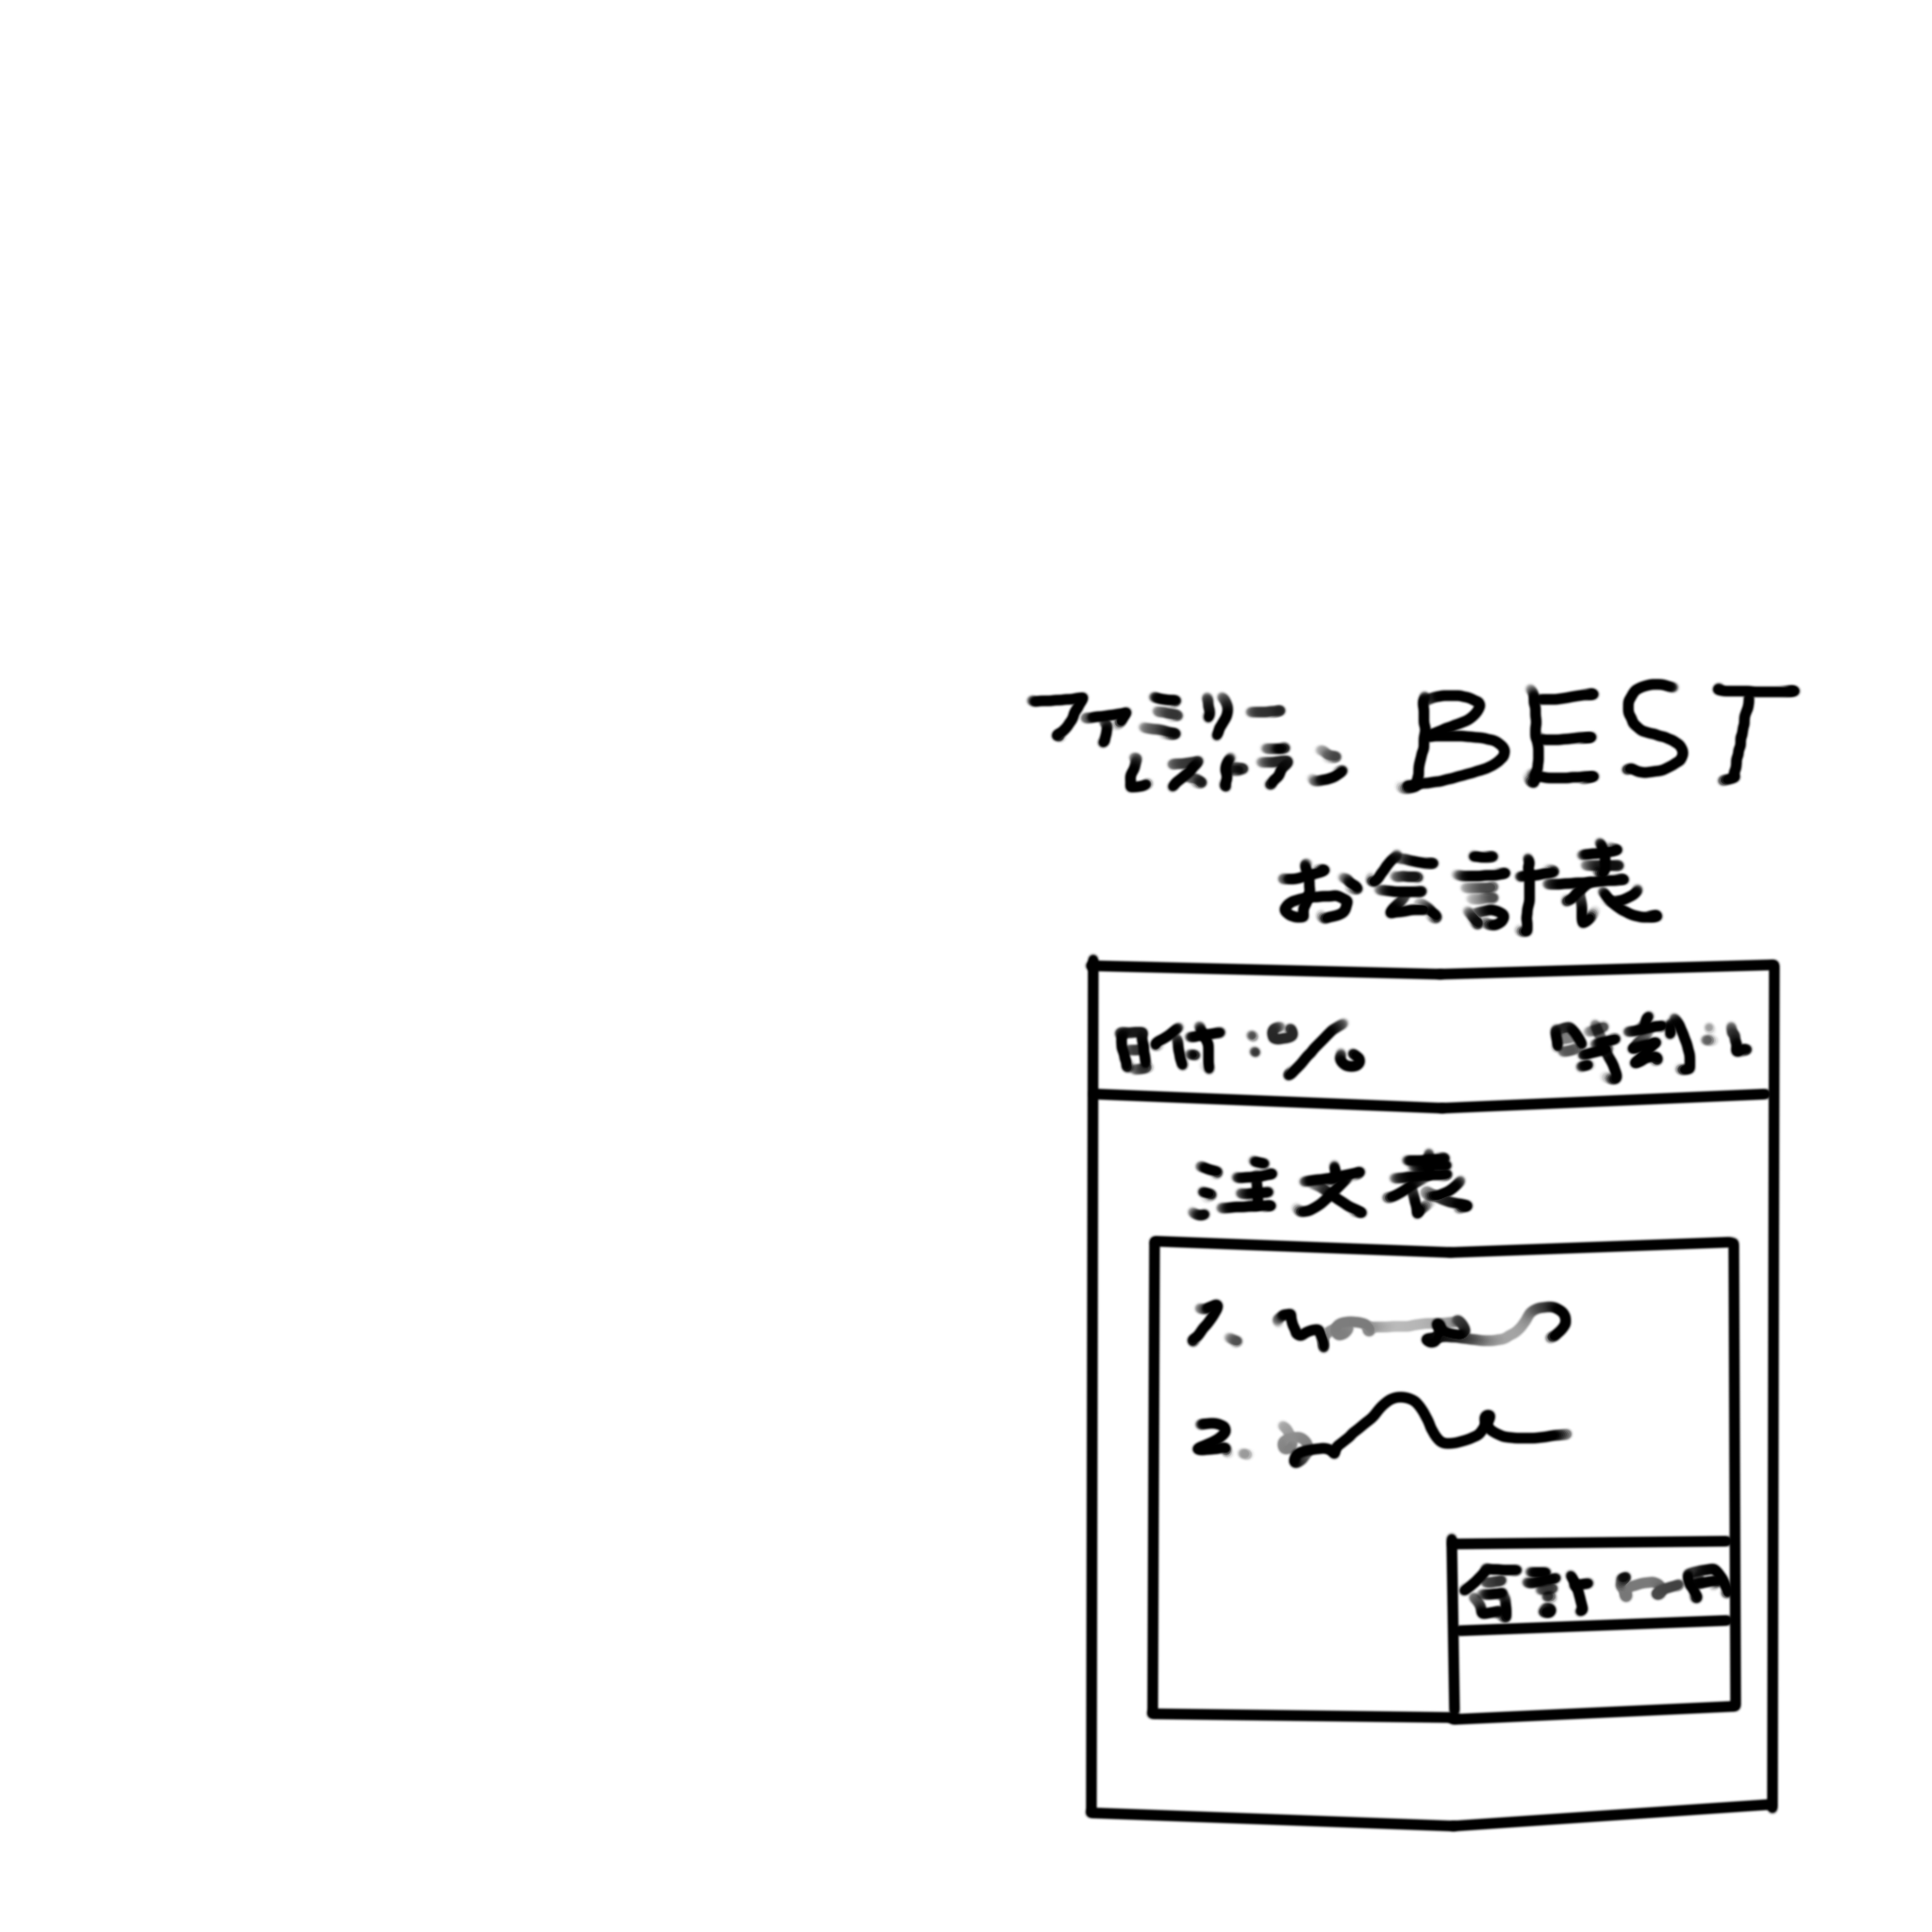 ファミリー
レストラン BEST
お会計表
日付: 時刻:
注文表
1.
2.
合計 円